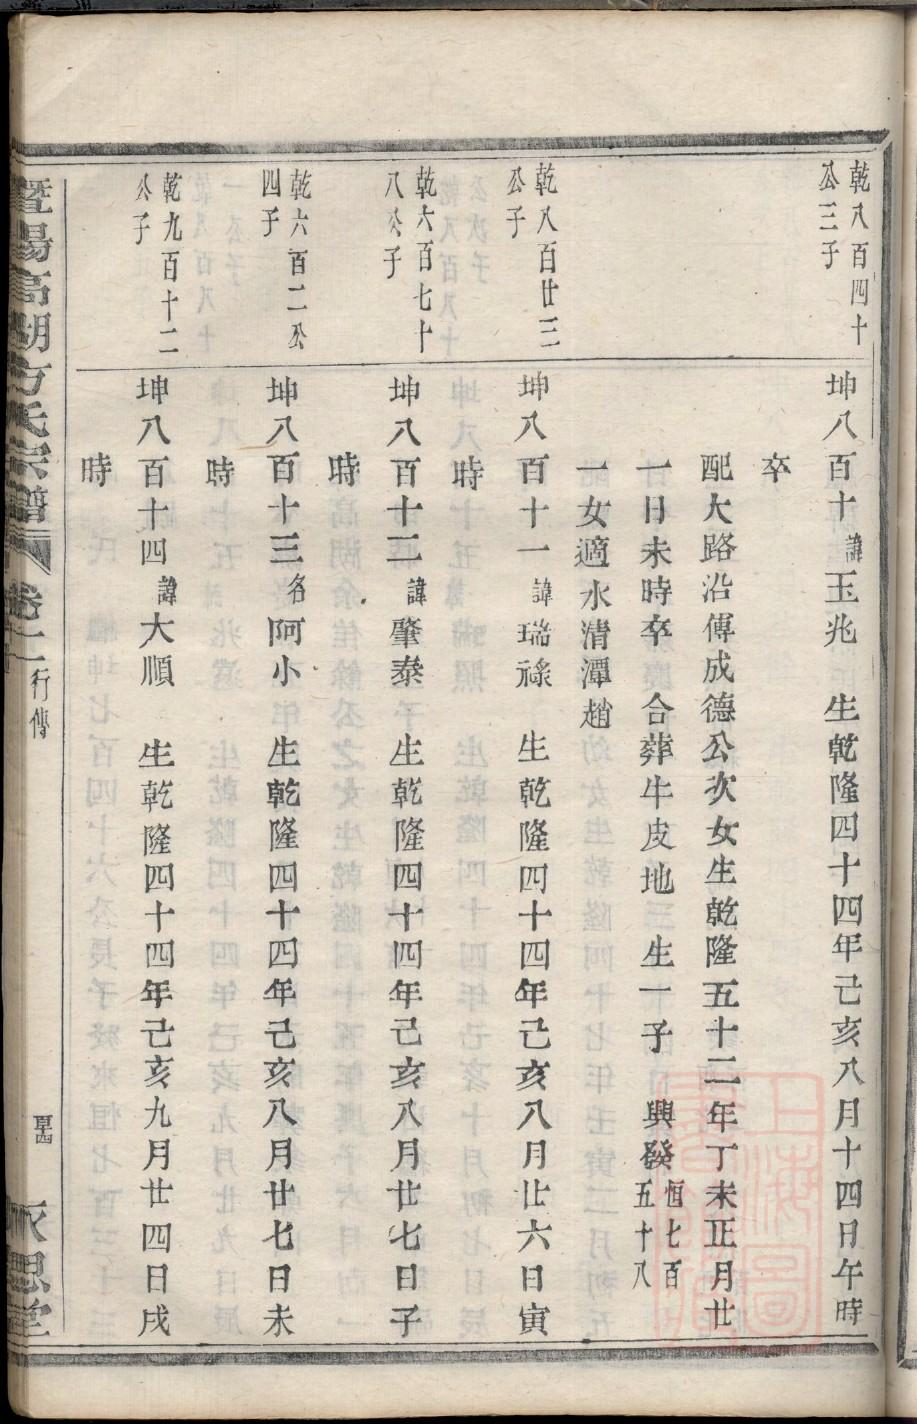 乾八百四十
公三子
坤八百十諱玉兆　生乾隆四十四年己亥八月十四日午時
卒
配大路沿傅成德公次女生乾隆五十二年丁未正月廿
一日未時卒　合葬牛皮地　生一子　興發恒七百五十八
一女適水清潭趙
乾八百廿三
公子
坤八百十一諱瑞祿　生乾隆四十四年己亥八月廿六日寅
時
乾六百七十
八公子
坤八百十二諱肇泰　生乾隆四十四年己亥八月廿七日子
時
乾六百二公
四子
坤八百十三名阿小　生乾隆四十四年己亥八月廿七日未
時
乾九百十二
公子
坤八百十四諱大順　生乾隆四十四年己亥九月廿四日戌
時
暨陽高湖方氏宗譜　卷十二　行傳　永思堂
上海圖書館藏